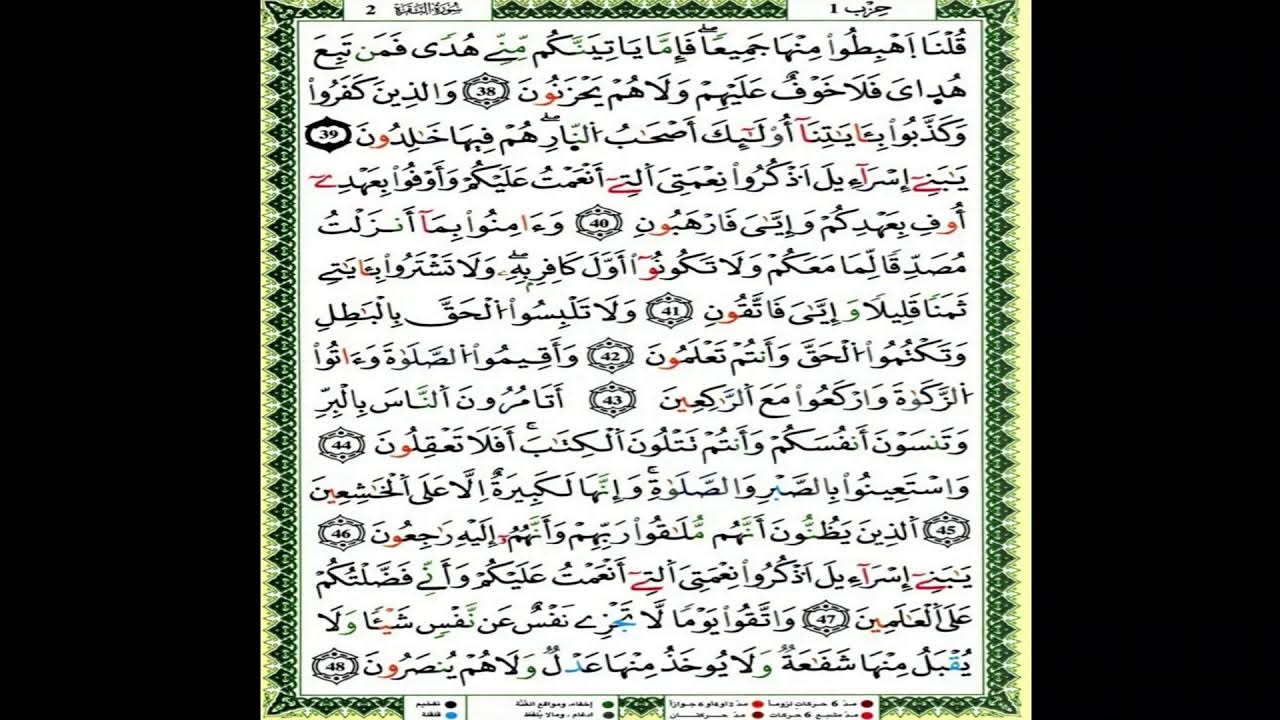 حِزْب 1 سُورَةُ البَقَرَة 2
قُلْنَا اَهْبِطُواْ مِنْهَا جَمِيعاًۖ فَإِمَّا يَاتِيَنَّكُم مِّنِّے هُدىٗ فَمَن تَبِعَ
هُدِايَ فَلَا خَوْفٌ عَلَيْهِمْ وَلَا هُمْ يَحْزَنُونَ 38 وَالذِينَ كَفَرُواْ
وَكَذَّبُواْ بِـَٔايَٰتِنَآ أُوْلَٰٓئِكَ أَصْحَٰبُ اُ۬لنّ۪ارِۖ هُمْ فِيهَا خَٰلِدُونَ 39
يَٰبَنِےٓ إِسْرَآءِيلَ اَذْكُرُواْ نِعْمَتِيَ اَ۬لتِےٓ أَنْعَمْتُ عَلَيْكُمْ وَأَوْفُواْ بِعَهْدِےٓ
أُوفِ بِعَهْدِكُمْ وَإِيَّٰيَ فَارْهَبُونِ 40 وَءَامِنُواْ بِمَآ أَنزَلْتُ
مُصَدِّقاٗ لِّمَا مَعَكُمْ وَلَا تَكُونُوٓاْ أَوَّلَ كَافِرِۢ بِهِۦۖ وَلَا تَشْتَرُواْ بِـَٔايَٰتِے
ثَمَناٗ قَلِيلاٗ وَإِيَّٰيَ فَاتَّقُونِ 41 وَلَا تَلْبِسُواْ اُ۬لْحَقَّ بِالْبَٰطِلِ
وَتَكْتُمُواْ اُ۬لْحَقَّ وَأَنتُمْ تَعْلَمُونَ 42 وَأَقِيمُواْ اُ۬لصَّلَوٰةَ وَءَاتُواْ
اُ۬لزَّكَوٰةَ وَارْكَعُواْ مَعَ اَ۬لرَّٰكِعِينَ 43 أَتَامُرُونَ اَ۬لنَّاسَ بِالْبِرِّ
وَتَنسَوْنَ أَنفُسَكُمْ وَأَنتُمْ تَتْلُونَ اَ۬لْكِتَٰبَۚ أَفَلَا تَعْقِلُونَ 44
وَاسْتَعِينُواْ بِالصَّبْرِ وَالصَّلَوٰةِۚ وَإِنَّهَا لَكَبِيرَةٌ اِلَّا عَلَى اَ۬لْخَٰشِعِينَ
45 اَ۬لذِينَ يَظُنُّونَ أَنَّهُم مُّلَٰقُواْ رَبِّهِمْ وَأَنَّهُمُۥٓ إِلَيْهِ رَٰجِعُونَ 46
يَٰبَنِےٓ إِسْرَآءِيلَ اَذْكُرُواْ نِعْمَتِيَ اَ۬لتِےٓ أَنْعَمْتُ عَلَيْكُمْ وَأَنِّے فَضَّلْتُكُمْ
عَلَى اَ۬لْعَٰلَمِينَ 47 وَاتَّقُواْ يَوْماٗ لَّا تَجْزِے نَفْسٌ عَن نَّفْسٖ شَيْـٔاٗ وَلَا
يُقْبَلُ مِنْهَا شَفَٰعَةٞ وَلَا يُوخَذُ مِنْهَا عَدْلٞ وَلَا هُمْ يُنصَرُونَ 48
مدّ 6 حركات لزوماً مدّ 2 أو 4 أو 6 جوازاً إخفاء، ومواقع الغُنَّة تفخيم
مدّ مشبع 6 حركات مدّ حركتان ادغام، وما لا يُلفظ قلقلة